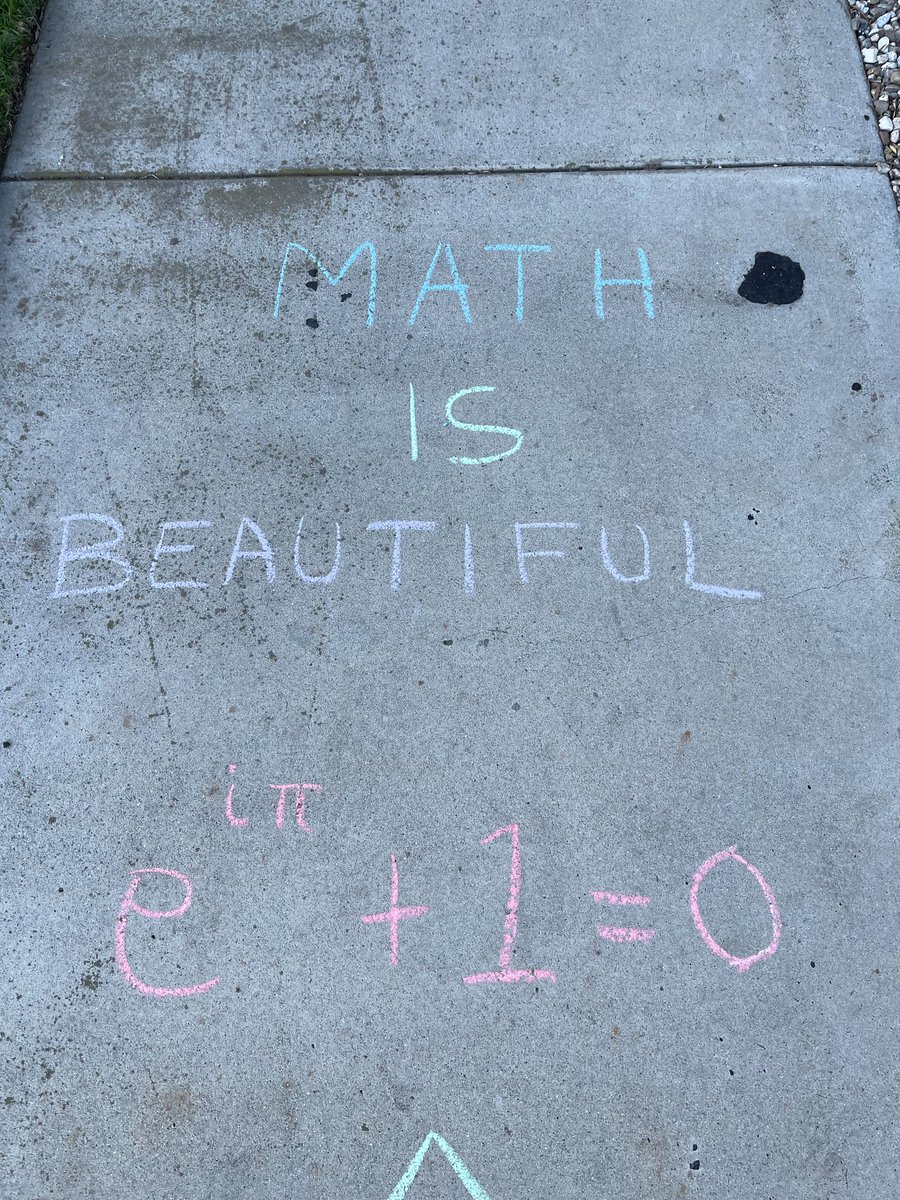 MATH
IS
BEAUTIFUL
e^{iπ} + 1 = 0